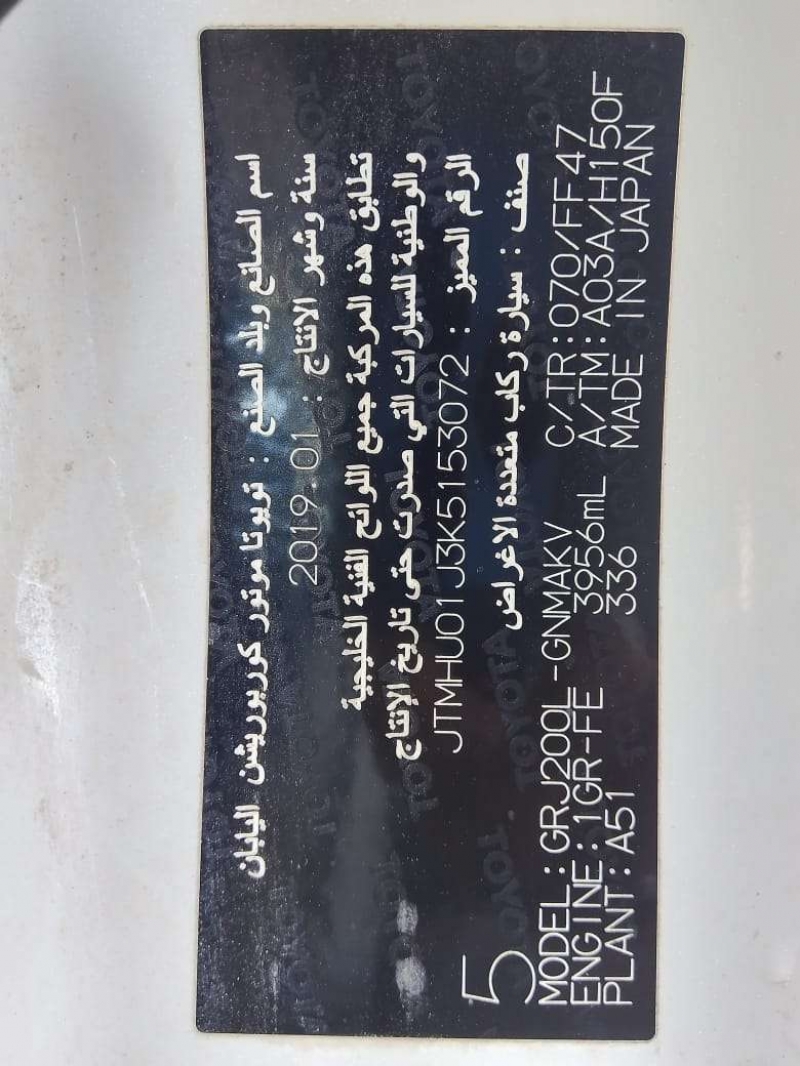 اسم الصانع وبلد الصنع : تويوتا موتور كوربوريشن اليابان
سنة وشهر الانتاج : 2019.01
تطابق هذه المركبة جميع اللوائح الفنية الخليجية
والوطنية للسيارات التي صدرت حتى تاريخ الإنتاج
الرقم المميز : JTMHU01J3K5153072
صنف : سيارة ركاب متعددة الاغراض
5
MODEL:GRJ200L-GNMAKV C/TR:070/FF47
ENGINE:1GR-FE 3956mL A/TM:A03A/H150F
PLANT:A51 336 MADE IN JAPAN